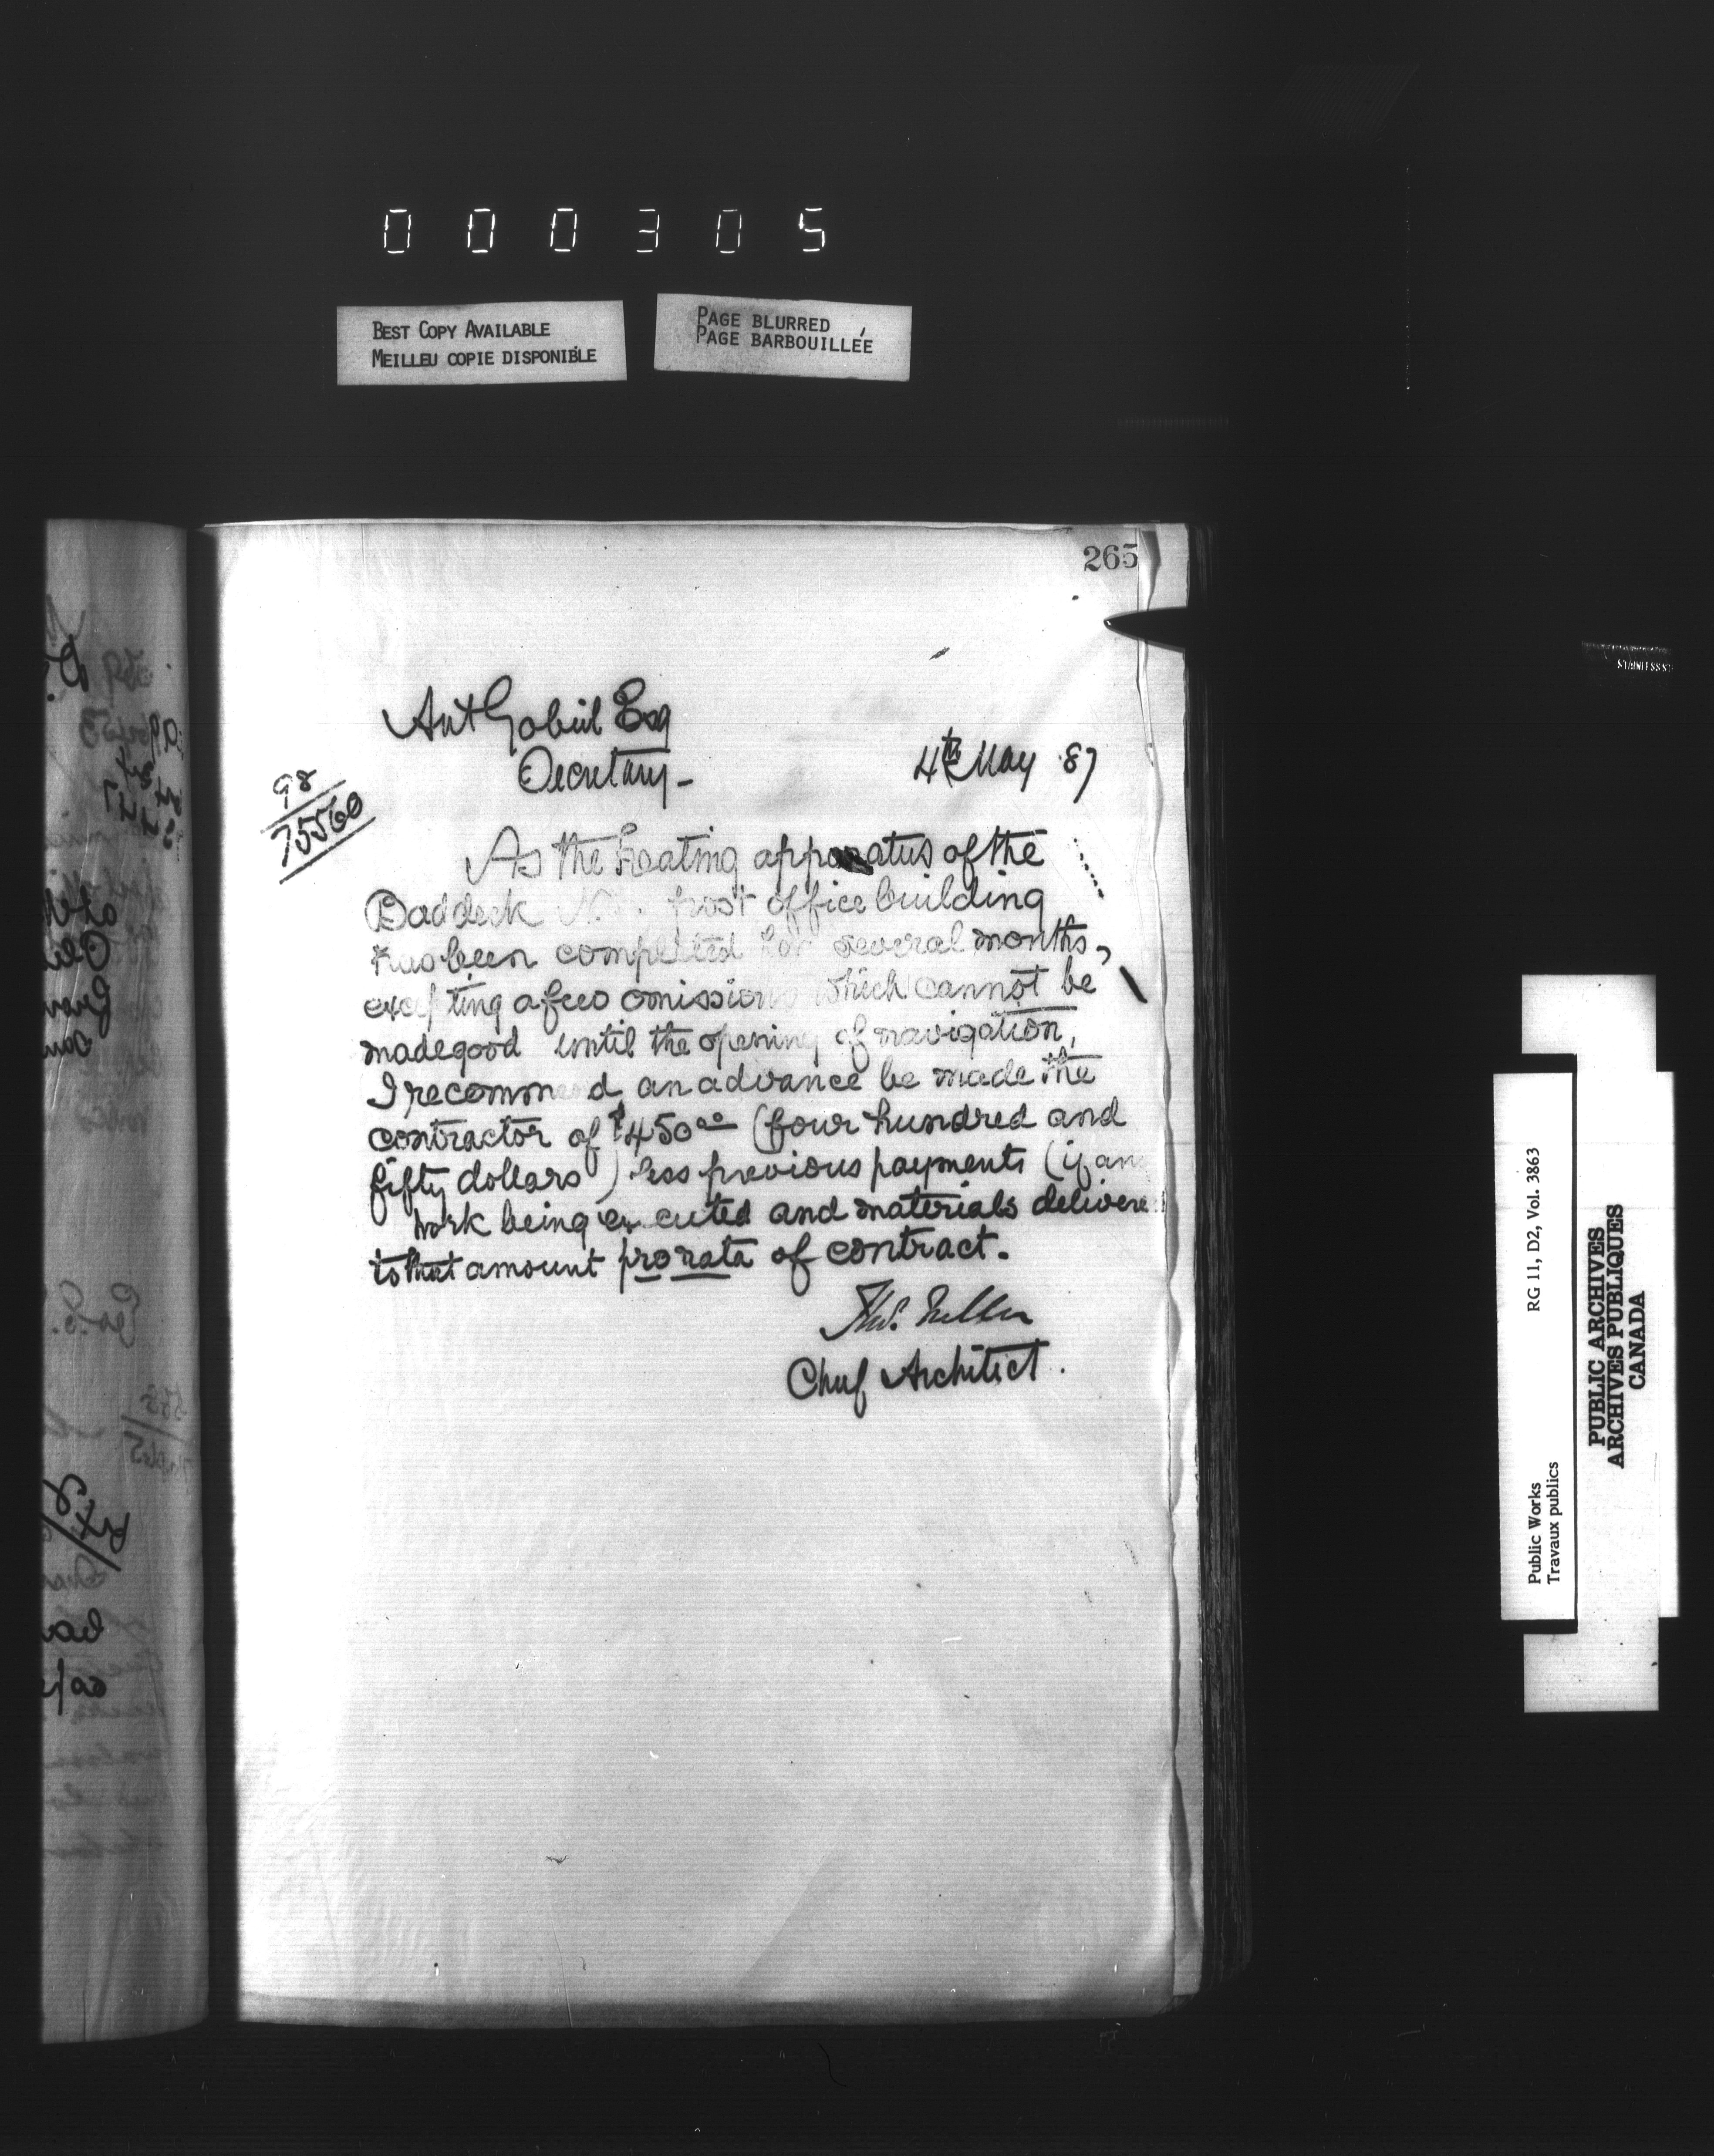 000305
BEST COPY AVAILABLE
MEILLEU COPIE DISPONIBLE
PAGE BLURRED
PAGE BARBOUILLÉE
265
Ant Gobeil Esq
Secretary -
4th May 87
98
75560
As the heating apparatus of the
Baddeck N.S. post office building
has been completed for several months,
excepting a few omissions which cannot be
made good until the opening of navigation,
I recommend an advance be made the
contractor of $450.00 (four hundred and
fifty dollars) less previous payments (if any
work being executed and materials delivered
to that amount pro rata of contract.
Thos. Fuller
Chief Architect.
Public Works
Travaux publics
RG 11, D2, Vol. 3863
PUBLIC ARCHIVES
ARCHIVES PUBLIQUES
CANADA